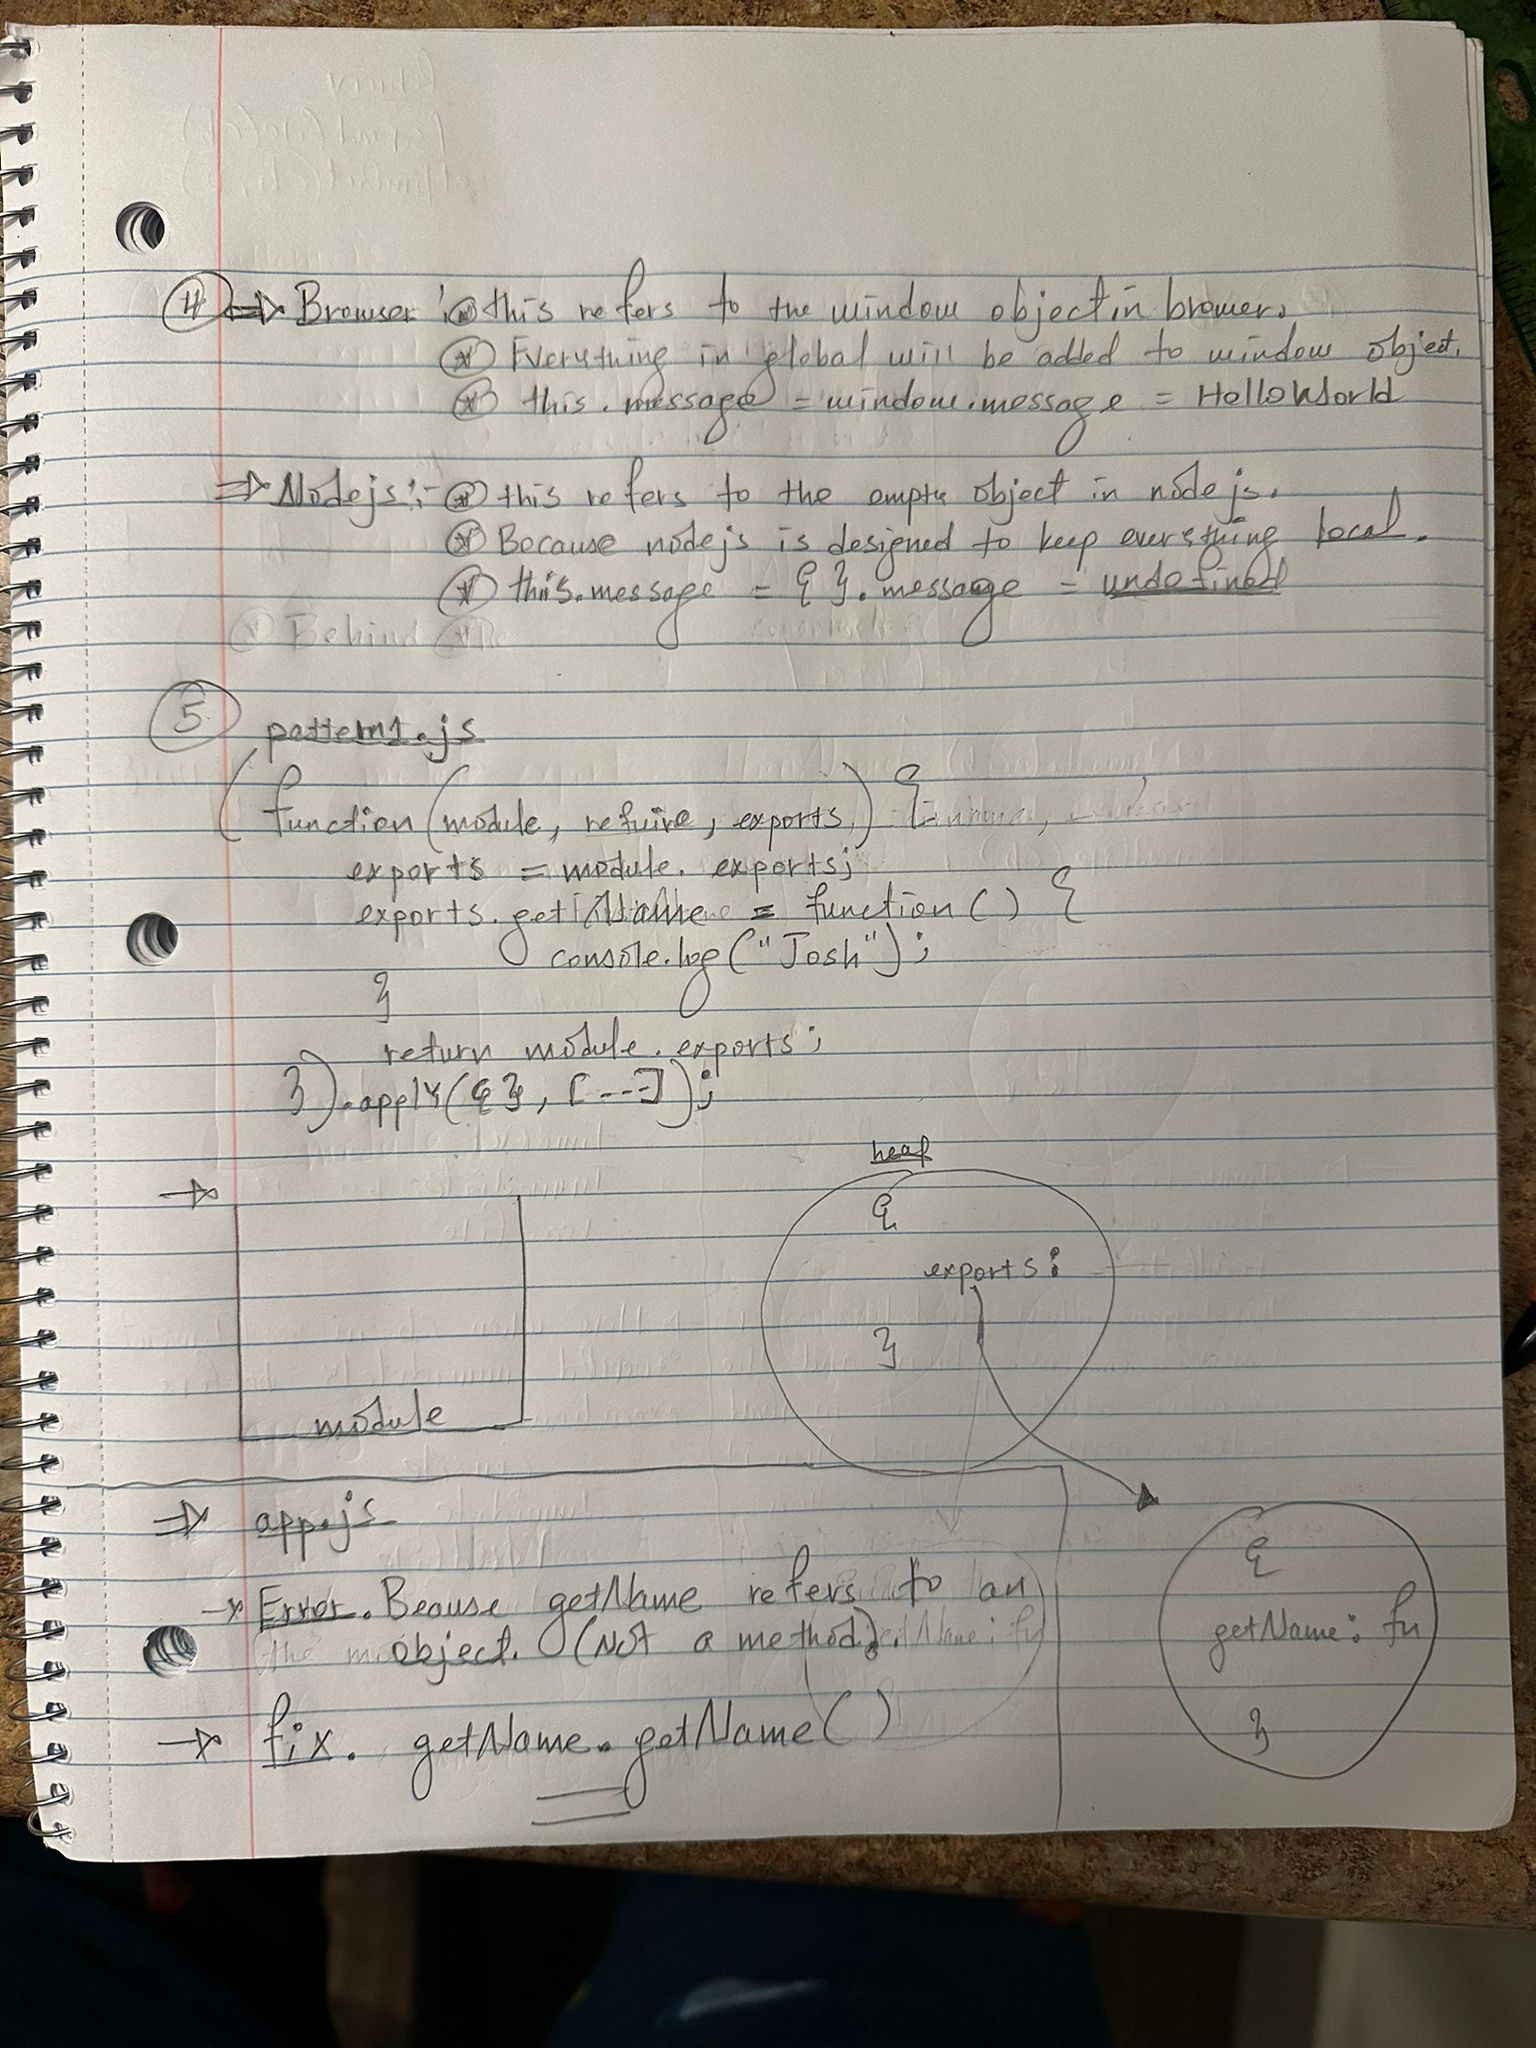 4 => Browser :- * this refers to the window object in browser.
* Everything in global will be added to window object.
* this.message = window.message = HelloWorld
=> Nodejs :- * this refers to the empty object in nodejs.
* Because nodejs is designed to keep everything local.
* this.message = { }.message = undefined
* Behind the
5
pattern1.js
( function (module, require, exports) {
exports = module.exports;
exports.getName = function () {
console.log("Josh");
}
return module.exports;
}).apply({}, [---]);
heap
{
exports :
}
module
=> app.js
-> Error. Beause getName refers to an
object. (Not a method).
-> fix. getName.getName()
{
getName : fn
}